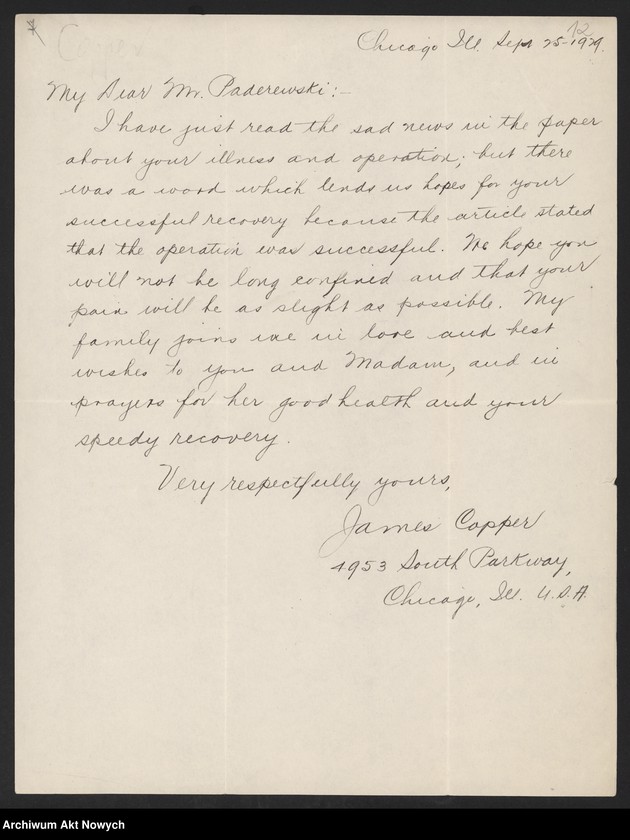 12
Copper
Chicago Ill. Sept 25-1929.
My Dear Mr. Paderewski:-
I have just read the sad news in the paper
about your illness and operation; but there
was a word which lends us hopes for your
successful recovery because the article stated
that the operation was successful. We hope you
will not be long confined and that your
pain will be as slight as possible. My
family joins me in love and best
wishes to you and Madam, and in
prayers for her good health and your
speedy recovery.
Very respectfully yours,
James Copper
4953 South Parkway,
Chicago, Ill. U.S.A.
Archiwum Akt Nowych